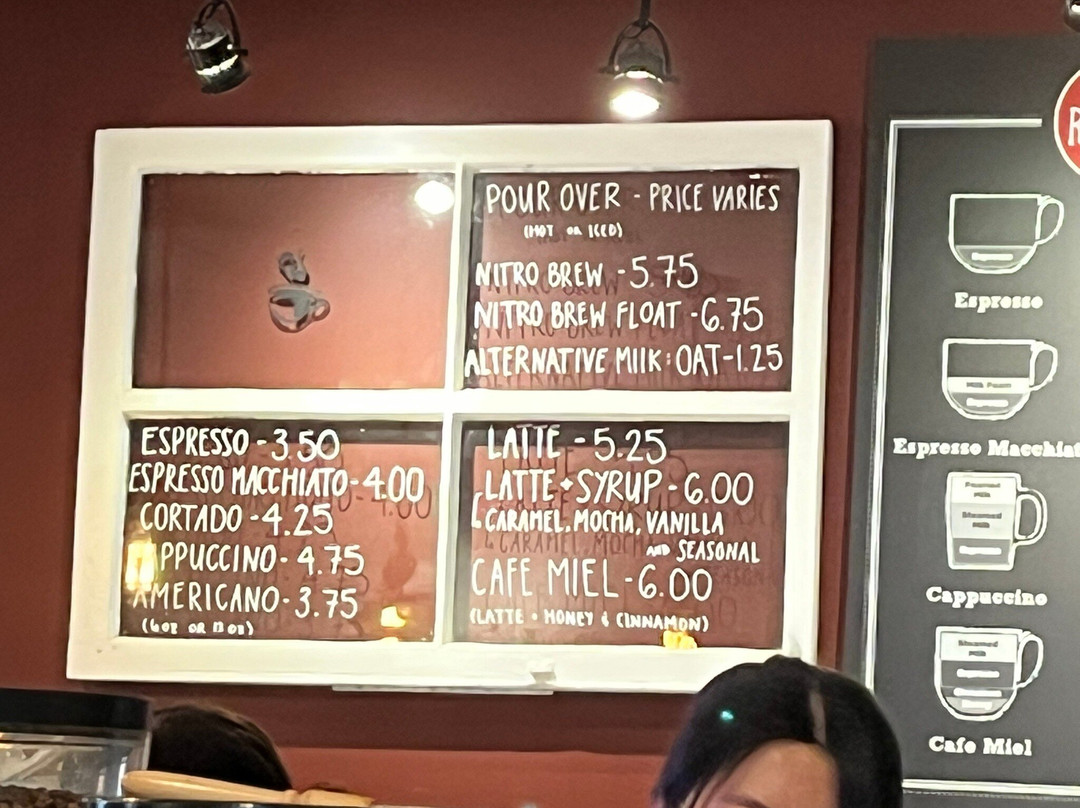 POUR OVER - PRICE VARIES
(HOT OR ICED)
NITRO BREW - 5.75
NITRO BREW FLOAT - 6.75
ALTERNATIVE MIlK: OAT - 1.25
ESPRESSO - 3.50
ESPRESSO MACCHIATO - 4.00
CORTADO - 4.25
CAPPUCCINO - 4.75
AMERICANO - 3.75
LATTE - 5.25
LATTE + SYRUP - 6.00
CARAMEL, MOCHA, VANILLA
AND SEASONAL
CAFE MIEL - 6.00
(LATTE + HONEY & CINNAMON)
R
Espresso
Espresso
Milk Foam
Espresso
Espresso Macchiat
Foamed
Milk
Steamed
Milk
Espresso
Cappuccino
Steamed
Milk
Espresso
Cinnamon
Honey
Cafe Miel